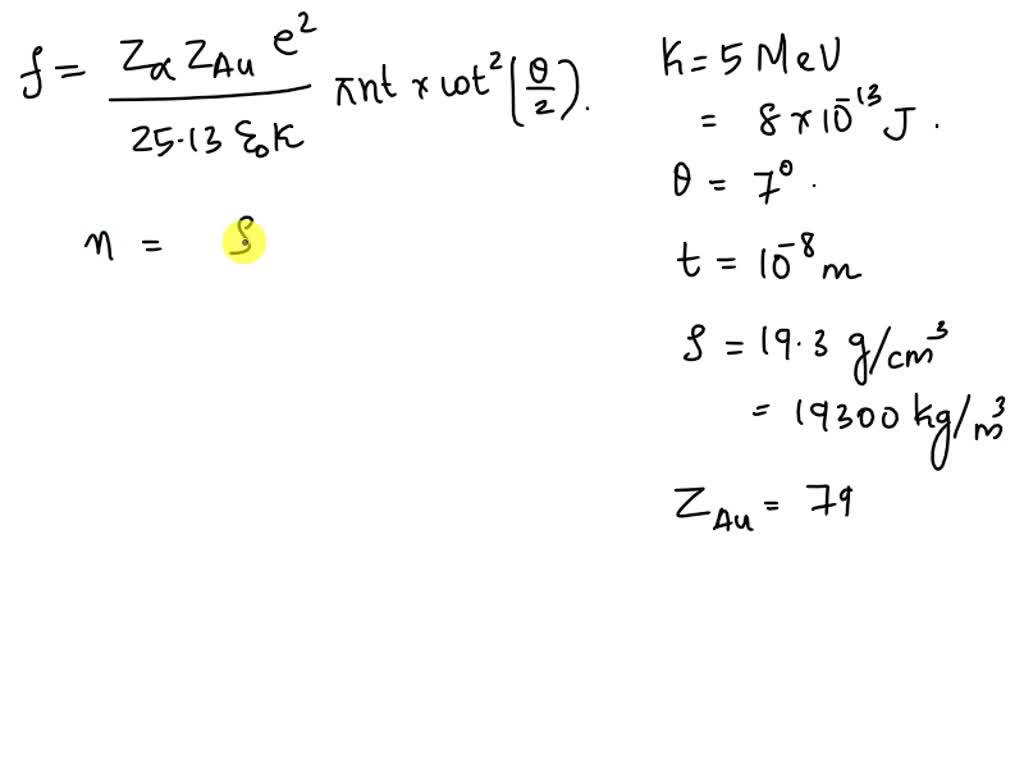 f = Zα ZAu e² / 25.13 ε₀K πnt × cot²(θ/2).
n = ρ
K = 5 MeV
= 8 × 10⁻¹³ J.
θ = 7°.
t = 10⁻⁸ m
ρ = 19.3 g/cm³
= 19300 kg/m³
ZAu = 79